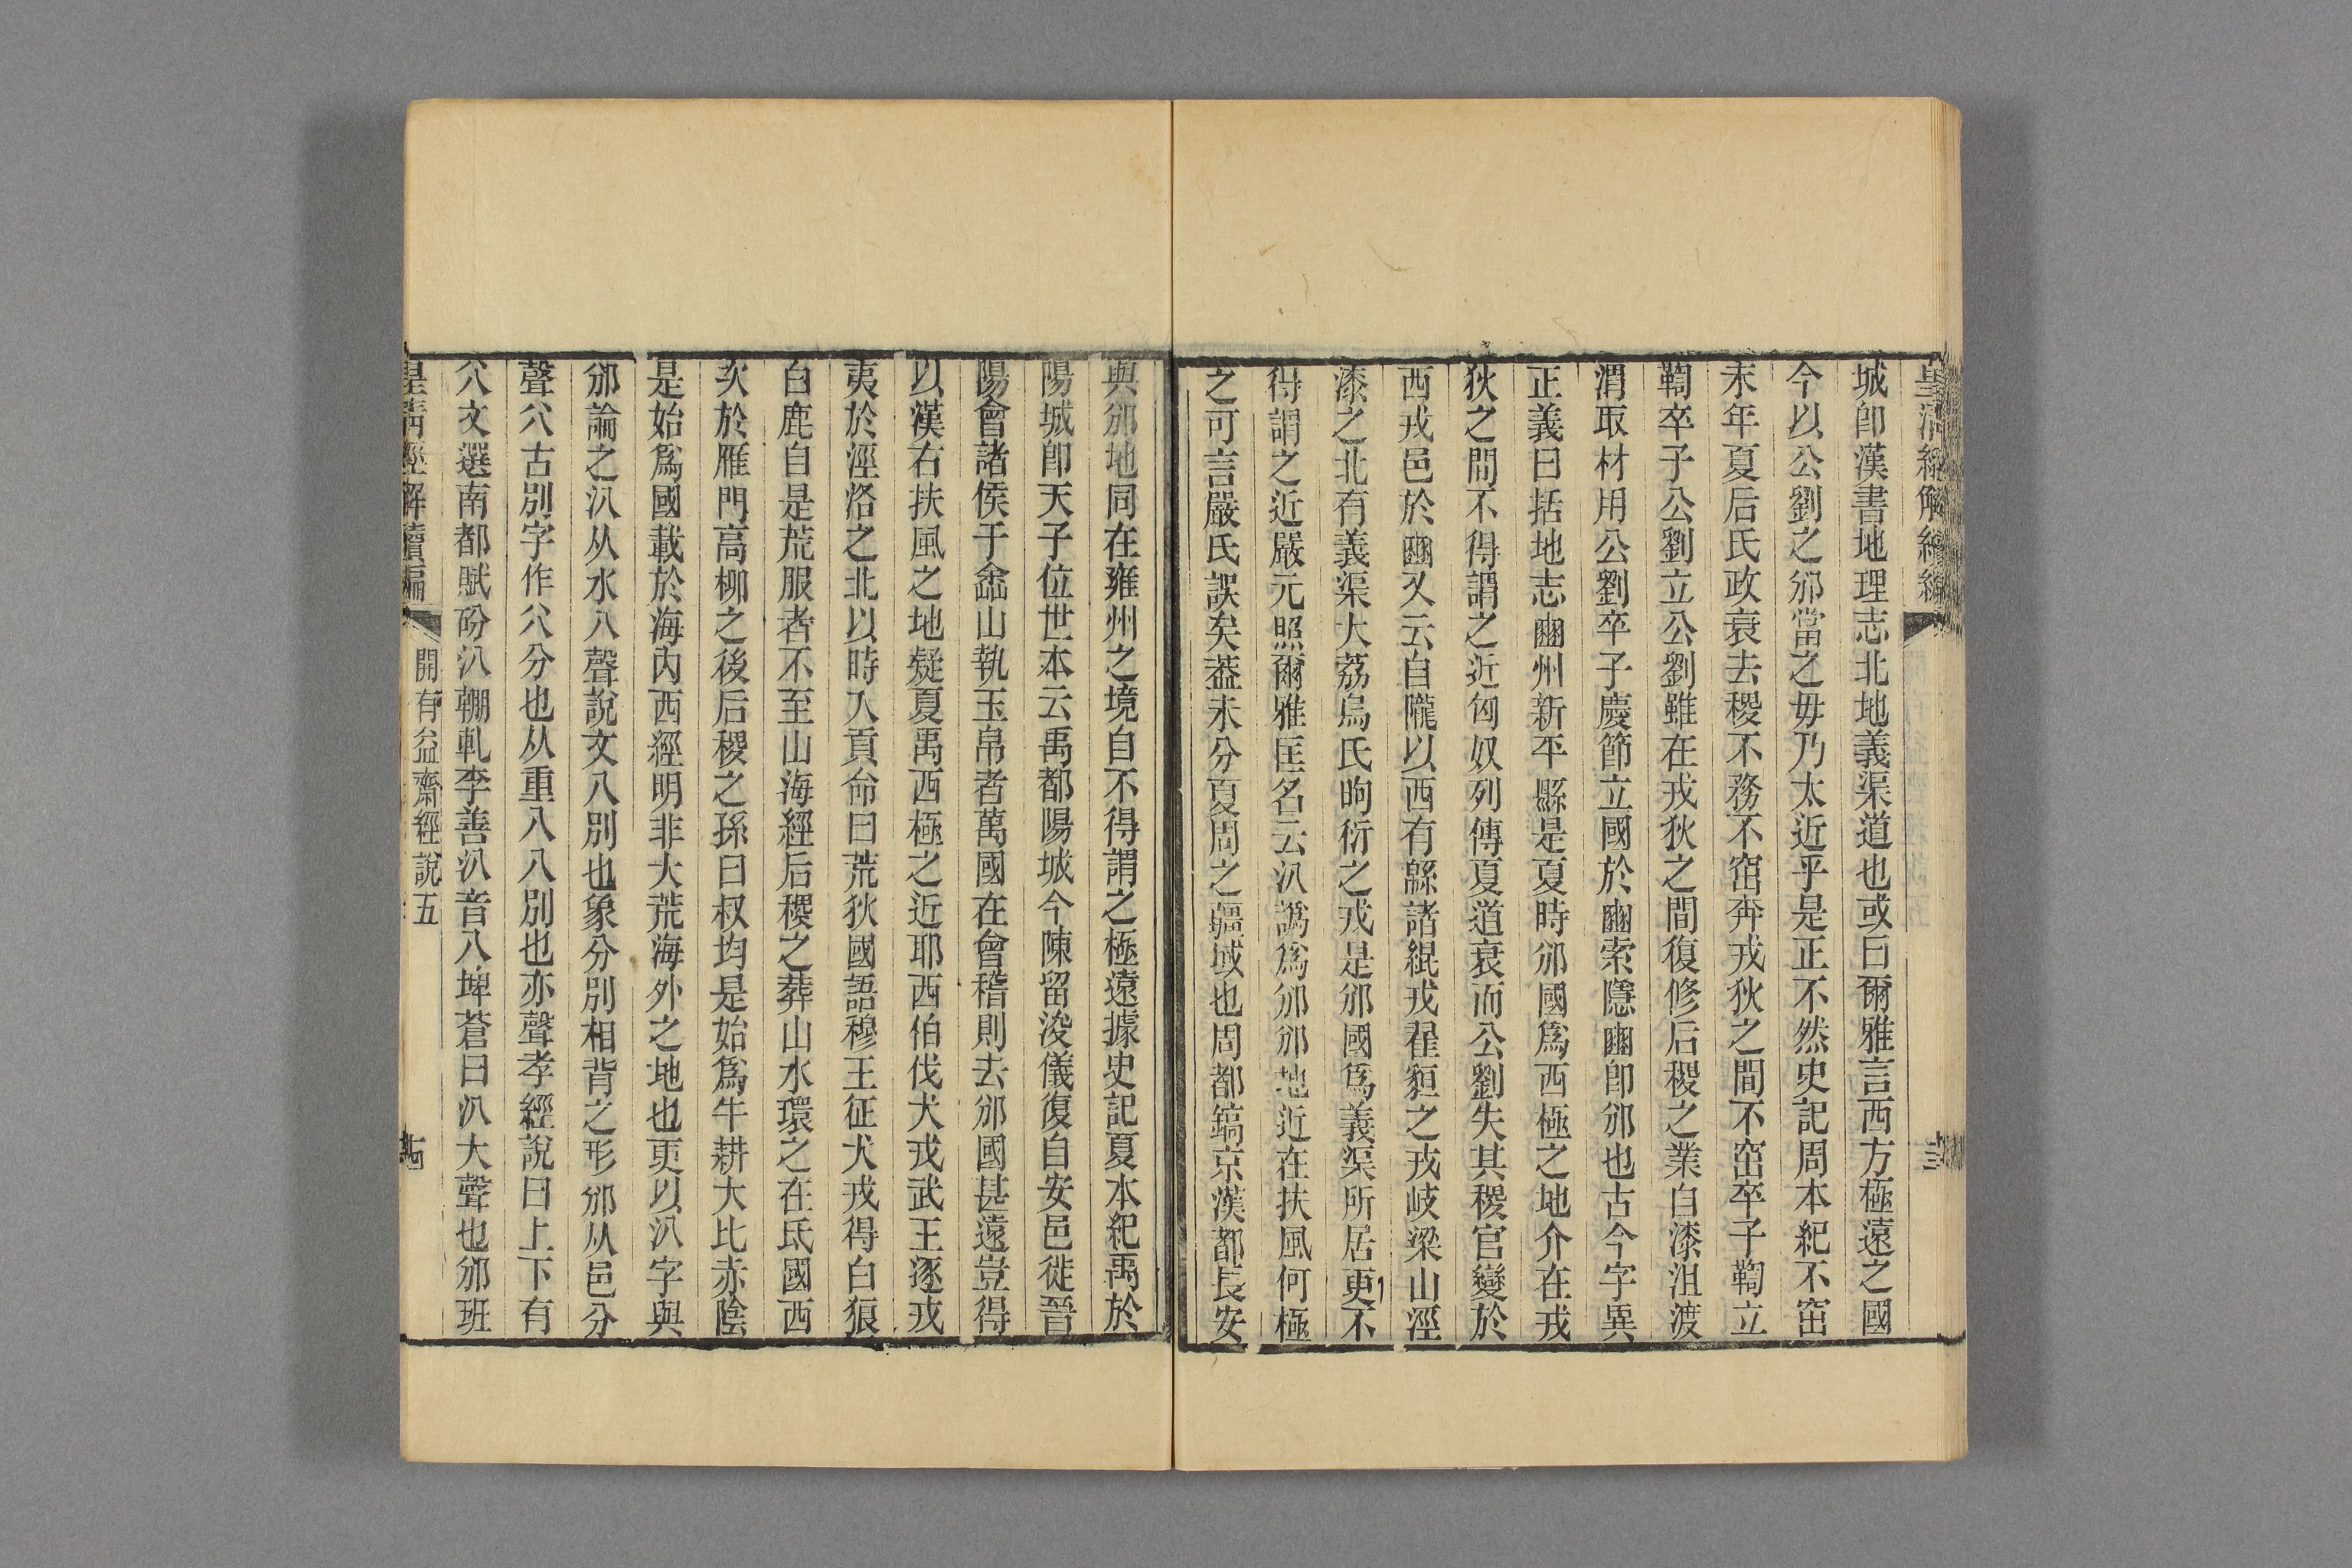 皇清經解續編
城卽漢書地理志北地義渠道也或曰爾雅言西方極遠之國
今以公劉之邠當之毋乃太近乎是正不然史記周本紀不窋
末年夏后氏政衰去稷不務不窋奔戎狄之間不窋卒子鞠立
鞠卒子公劉立公劉雖在戎狄之間復修后稷之業自漆沮渡
渭取材用公劉卒子慶節立國於豳索隱豳卽邠也古今字異
正義曰括地志豳州新平縣是夏時邠國爲西極之地介在戎
狄之間不得謂之近匈奴列傳夏道衰而公劉失其稷官變於
西戎邑於豳又云自隴以西有緜諸緄戎翟䝠之戎岐梁山涇
漆之北有義渠大荔烏氏朐衍之戎是邠國爲義渠所居更不
得謂之近嚴元照爾雅匡名云汃譌爲邠邠地近在扶風何極
之可言嚴氏誤矣葢未分夏周之疆域也周都鎬京漢都長安
與邠地同在雍州之境自不得謂之極遠據史記夏本紀禹於
陽城卽天子位世本云禹都陽城今陳留浚儀復自安邑徙晉
陽會諸侯于嵞山執玉帛者萬國在會稽則去邠國甚遠豈得
以漢右扶風之地疑夏禹西極之近耶西伯伐犬戎武王逐戎
夷於涇洛之北以時入貢命曰荒狄國語穆王征犬戎得白狼
白鹿自是荒服者不至山海經后稷之葬山水環之在氐國西
次於雁門高柳之後后稷之孫曰叔均是始爲牛耕大比赤陰
是始爲國載於海內西經明非大荒海外之地也更以汃字與
邠論之汃从水八聲說文八別也象分別相背之形邠从邑分
聲㕣古別字作㕣分也从重八八別也亦聲孝經說曰上下有
㕣文選南都賦砏汃輣軋李善汃音八埤蒼曰汃大聲也邠班
皇清經解續編
開有益齋經說五